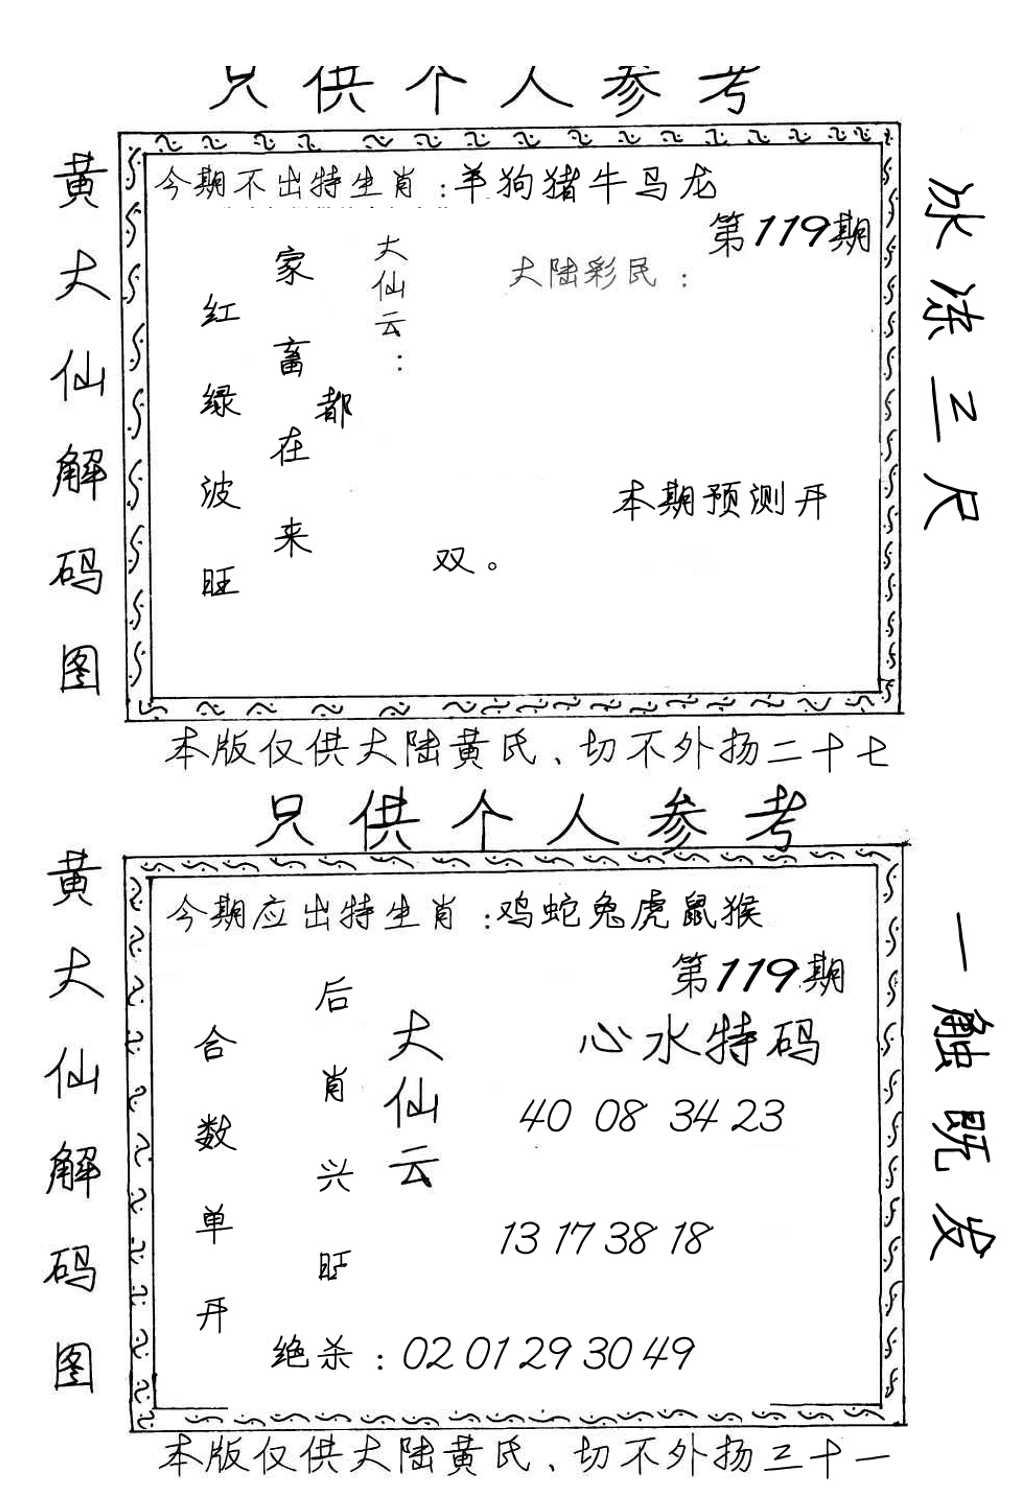 只供个人参考
黄大仙解码图
今期不出特生肖:羊狗猪牛马龙
第119期
大陆彩民:
大仙云:
都
家畜在来
红绿波旺
本期预测开
双。
冰冻三尺
本版仅供大陆黄氏、切不外扬二十七
只供个人参考
黄大仙解码图
今期应出特生肖:鸡蛇兔虎鼠猴
第119期
心水特码
40 08 34 23
13 17 38 18
大仙云
后肖兴旺
合数单开
绝杀:02 01 29 30 49
一触既发
本版仅供大陆黄氏、切不外扬三十一